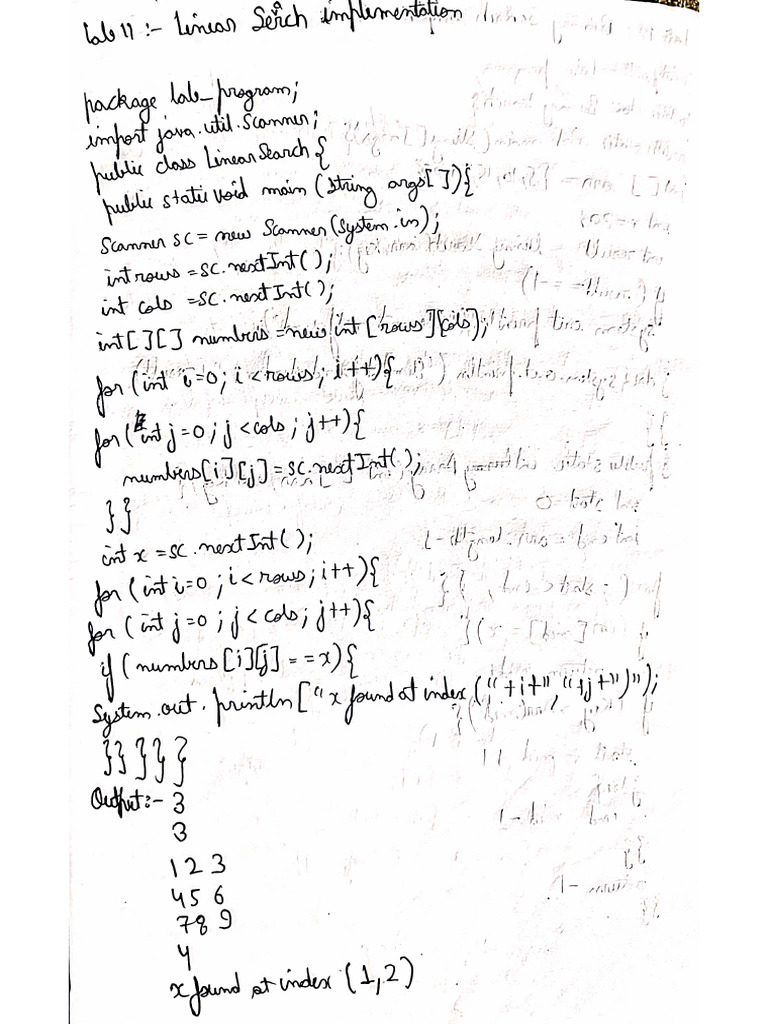 Lab 11 :- Linear Search implementation
package lab_program;
import java.util.Scanner;
public class LinearSearch {
public static void main (String args[]){
Scanner sc = new Scanner (System.in);
int rows = sc.nextInt();
int cols = sc.nextInt();
int[][] numbers = new int [rows][cols];
for (int i=0; i<rows; i++){
for (int j=0; j<cols; j++){
numbers[i][j] = sc.nextInt();
}}
int x = sc.nextInt();
for (int i=0; i<rows; i++){
for (int j=0; j<cols; j++){
if (numbers[i][j] == x){
System.out.println ["x found at index ("+i+","+j+")");
}}}}}
Output:- 3
3
1 2 3
4 5 6
7 8 9
4
x found at index (1,2)